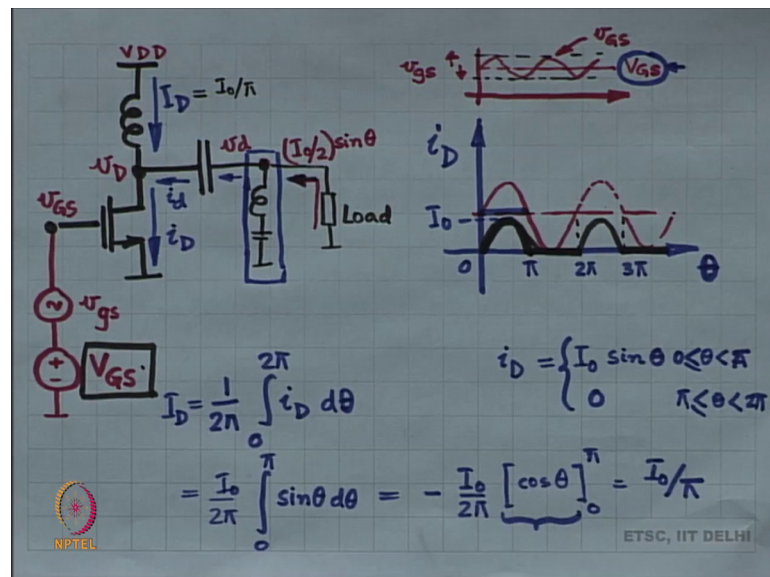 VDD
I_D = I_0/π
v_D
v_d
(I_0/2) sinθ
i_d
i_D
Load
v_GS
v_gs
V_GS
v_GS
v_gs
V_GS
i_D
I_0
0 π 2π 3π θ
i_D = { I_0 sin θ 0≤θ<π
0 π≤θ<2π
I_D = 1/2π ∫_0^2π i_D dθ
= I_0/2π ∫_0^π sinθ dθ = - I_0/2π [cosθ]_0^π = I_0/π
NPTEL
ETSC, IIT DELHI